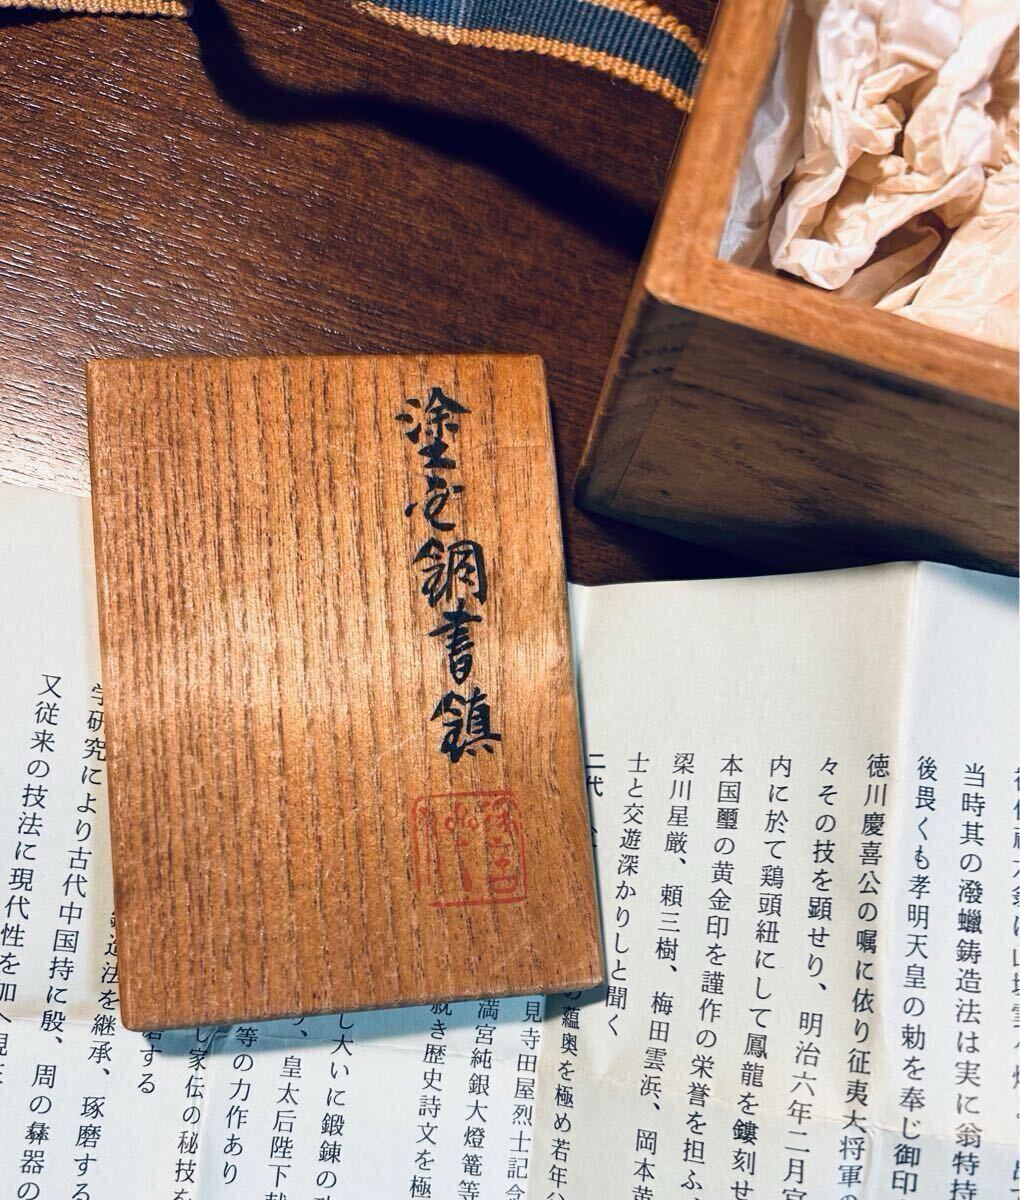 塗金銅書鎮
当時其の潑蠟鋳造法は実に翁特持
後畏くも孝明天皇の勅を奉じ御印
徳川慶喜公の嘱に依り征夷大将軍
々その技を顕せり、明治六年二月宮
内に於て鶏頭紐にして鳳龍を鏤刻せ
本国璽の黄金印を謹作の栄誉を担ふ、
梁川星厳、頼三樹、梅田雲浜、岡本黄
士と交遊深かりしと聞く
二代
の蘊奥を極め若年
見寺田屋烈士記念
満宮純銀大燈篭等
就き歴史詩文を極
し大いに鍛錬の
、皇太后陛下献
等の力作あり
し家伝の秘技を
磨する
造法を継承、琢磨する
学研究により古代中国持に殷、周の彝器の
又従来の技法に現代性を加へ現